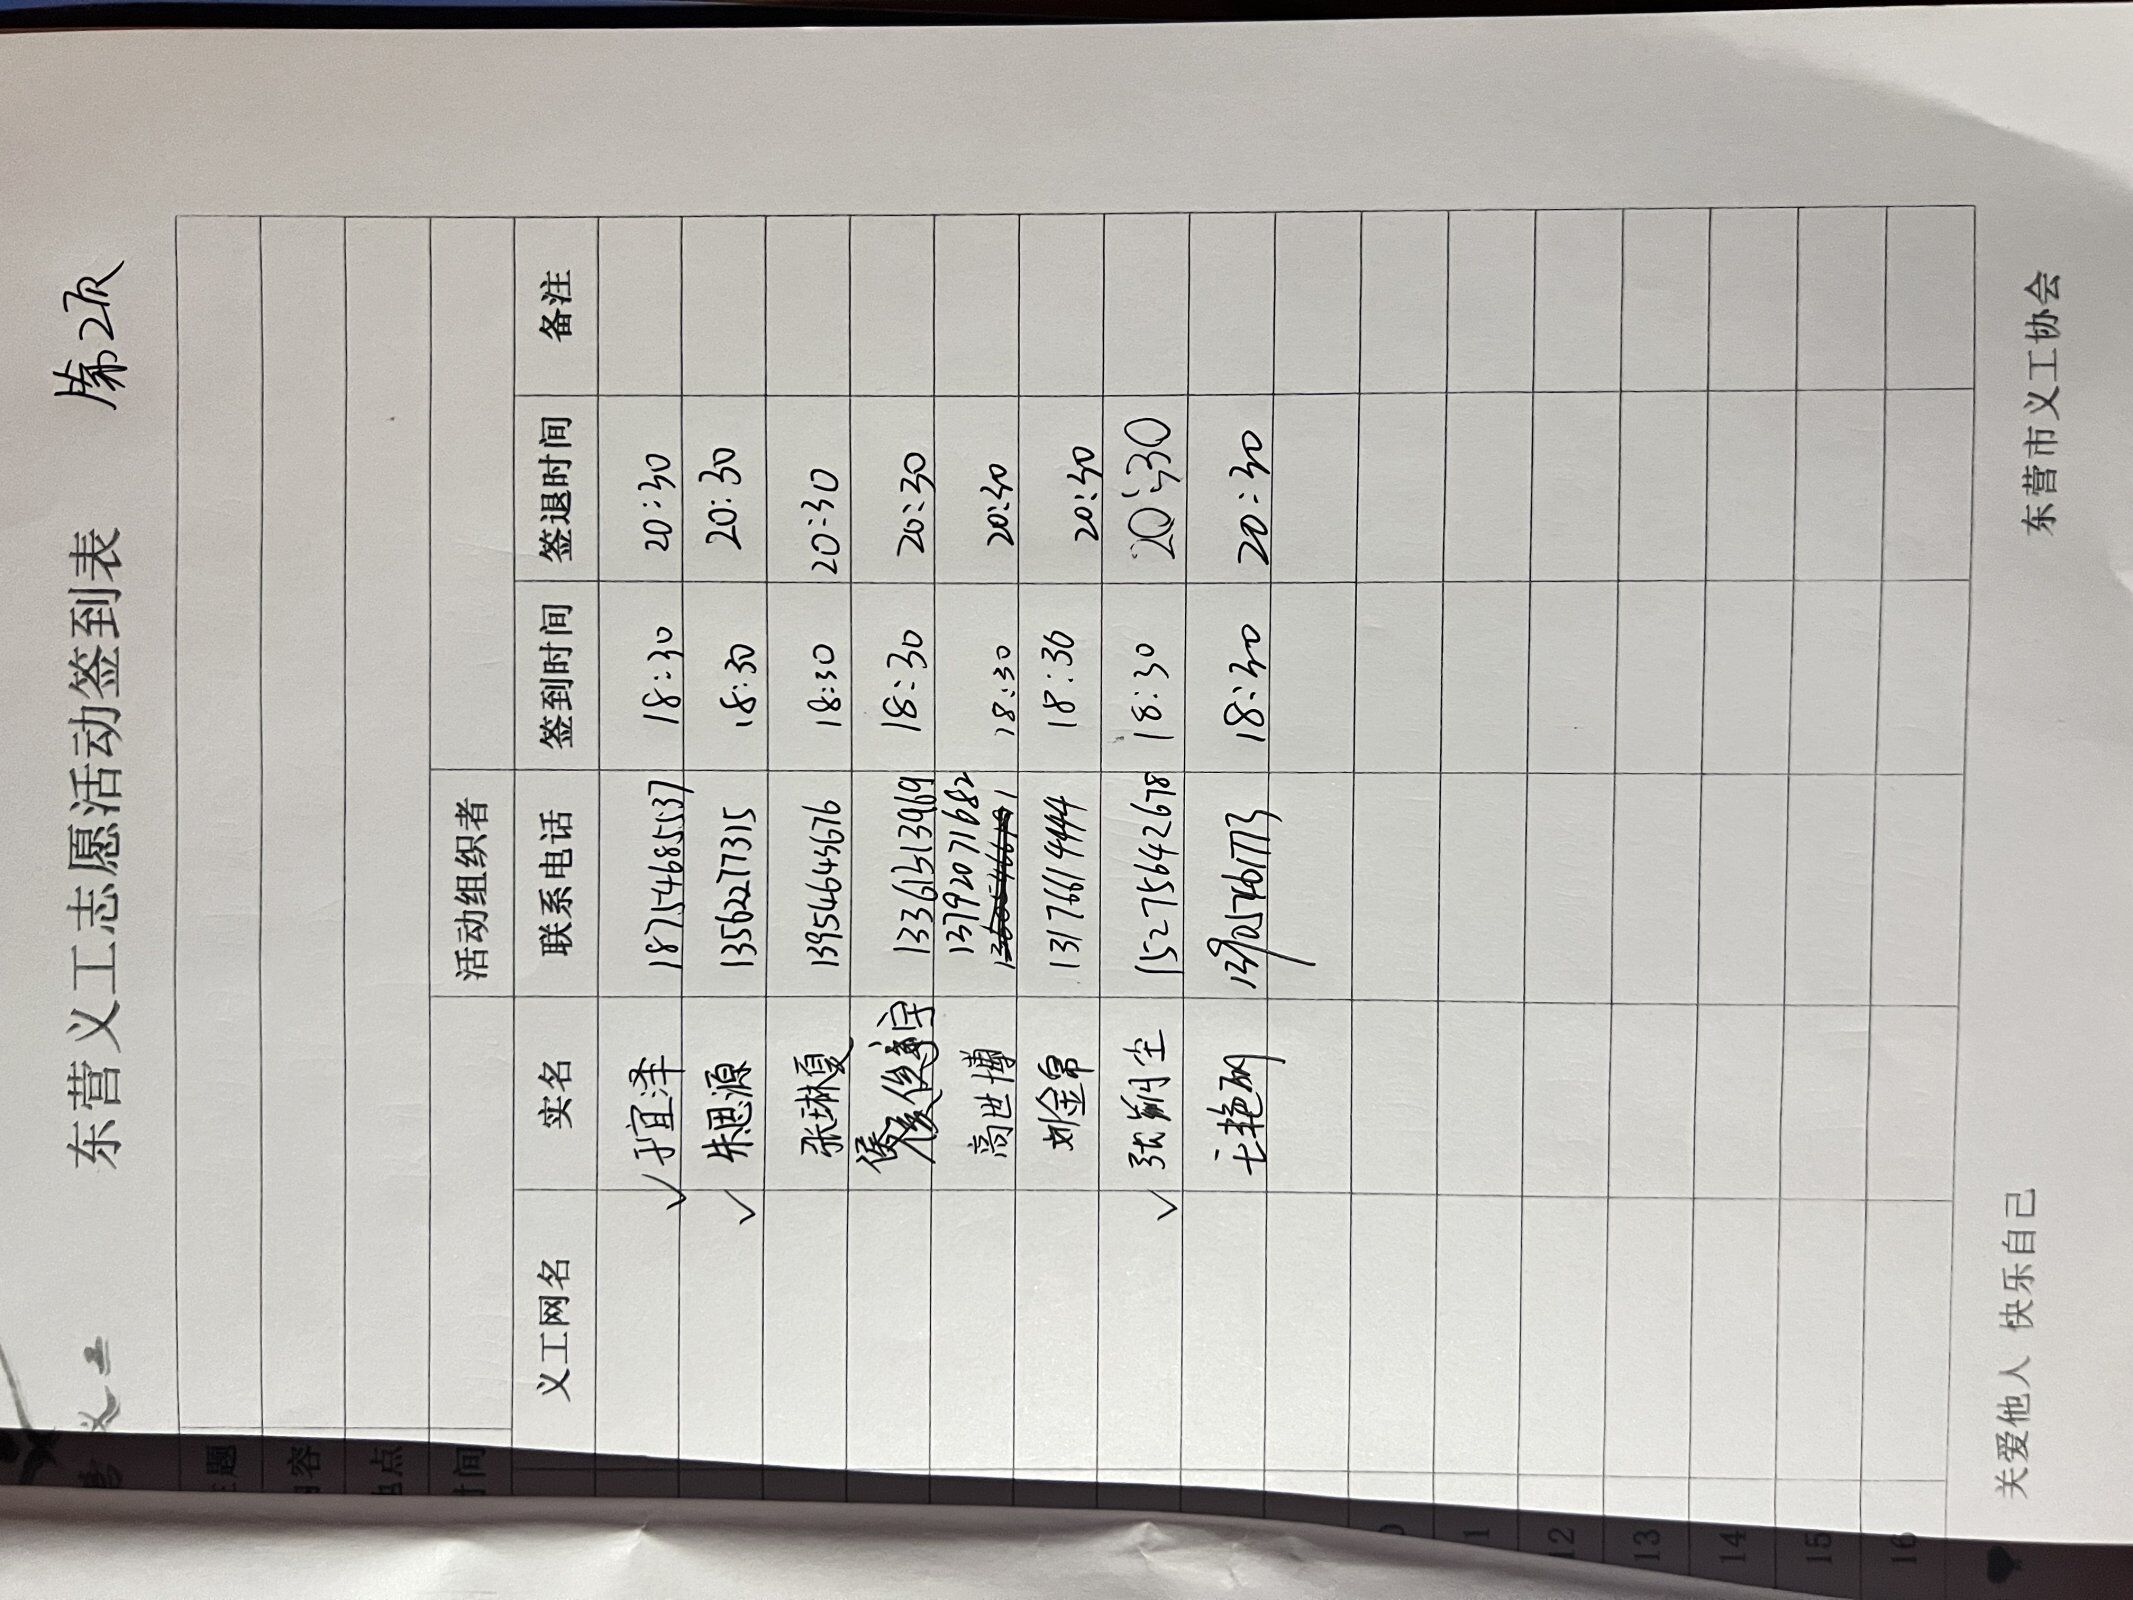 东营义工志愿活动签到表 第2页
题
容
点
时间 活动组织者
义工网名 实名 联系电话 签到时间 签退时间 备注
✓ 于宜泽 18754685537 18:30 20:30
✓ 朱思源 13562277315 18:30 20:30
张琳夏 13954643676 18:30 20:30
侯俊宇 13361513969 18:30 20:30
高世博 13792071682 18:30 20:30
刘金常 13176614444 18:36 20:30
✓ 张朔尘 15275642678 18:30 20:30
艳丽 18:30 20:30
11
12
13
14
15
16
关爱他人 快乐自己 东营市义工协会